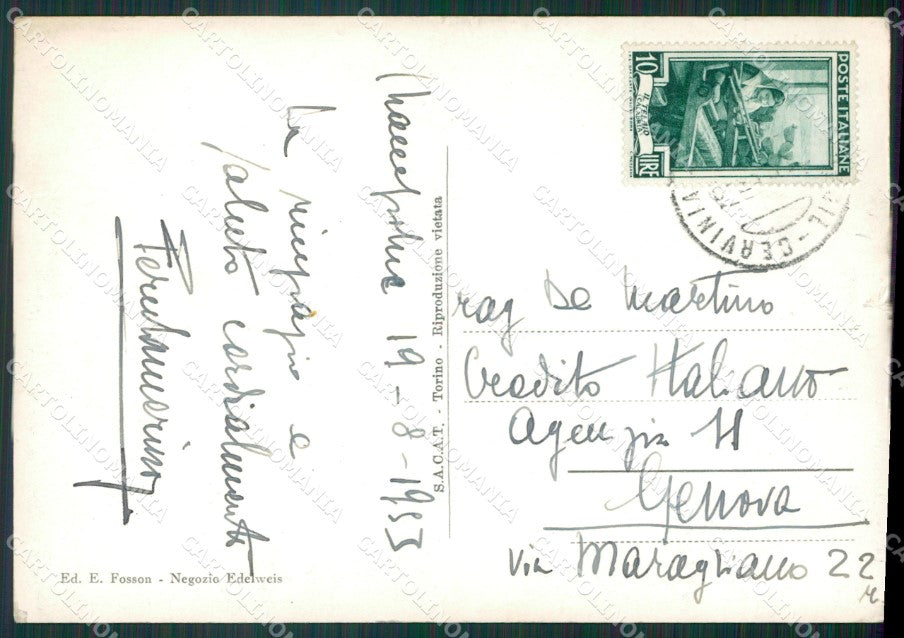 19-8-1953
La ringrazio e
saluto cordialmente
Ed. E. Fosson - Negozio Edelweis
S.A.C.A.T. - Torino - Riproduzione vietata
POSTE ITALIANE
10
LIRE
CERVINIA
rag De Martino
Credito Italiano
Agenzia H
Genova
Via Maragliano 22
CARTOLINOMANIA